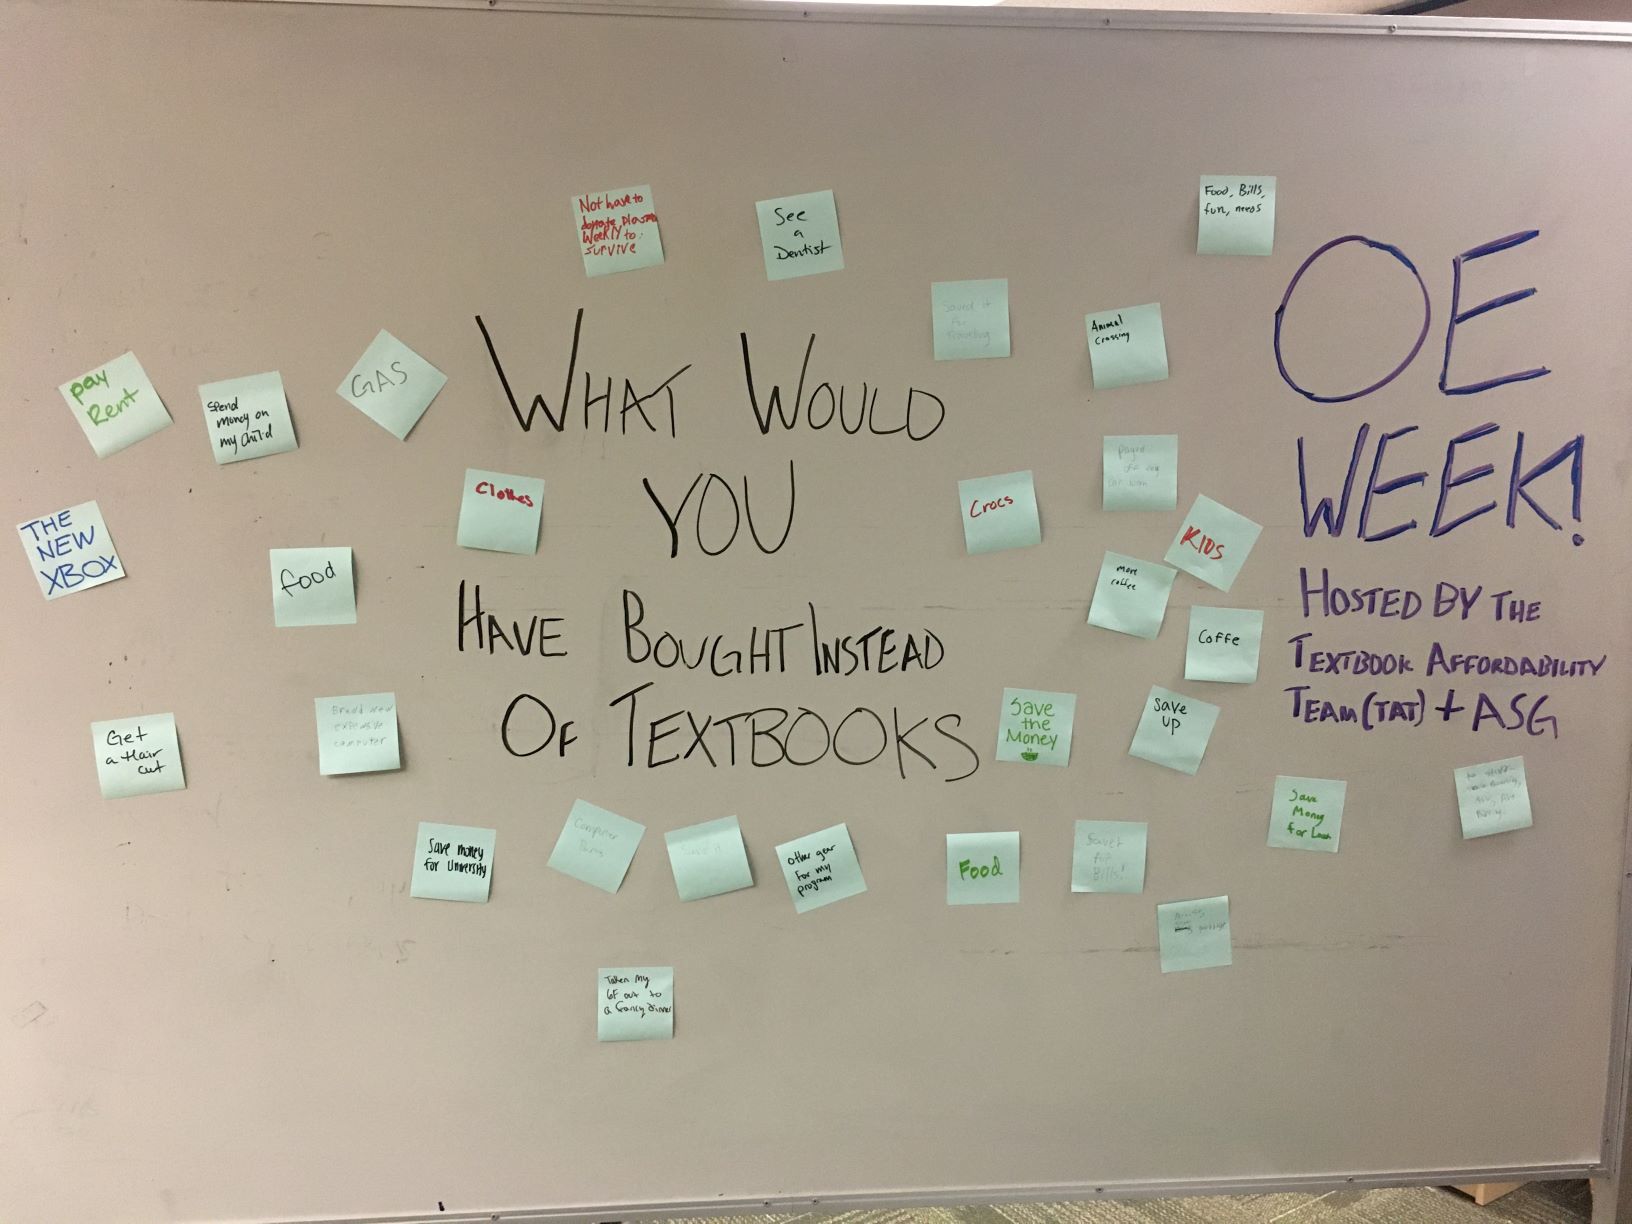 WHAT WOULD
YOU
HAVE BOUGHT INSTEAD
OF TEXTBOOKS
OE
WEEK!
HOSTED BY THE
TEXTBOOK AFFORDABILITY
TEAM (TAT) + ASG
Not have to
donate plasma
WeekLY to
survive
See
a
Dentist
Food, Bills,
fun, needs
Saved it
for
traveling
Animal
Crossing
pay
Rent
Spend
money on
my child
GAS
Clothes
Crocs
payed
off my
car loan
KIDS
THE
NEW
XBOX
food
more
coffee
Coffe
Get
a Hair
cut
Brand new
expensive
computer
Save
the
Money
Save
up
Save
Money
for
Save money
for University
Computer
Parts
Save it
other gear
for my
program
Food
Saved
for
Bills!
Taken my
GF out to
a fancy dinner